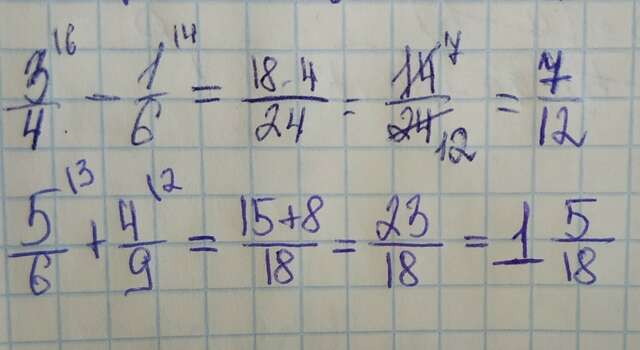 3/4 \6 - 1/6 \4 = 18-4/24 = 14/24 7 12 = 7/12
5/6 \3 + 4/9 \2 = 15+8/18 = 23/18 = 1 5/18